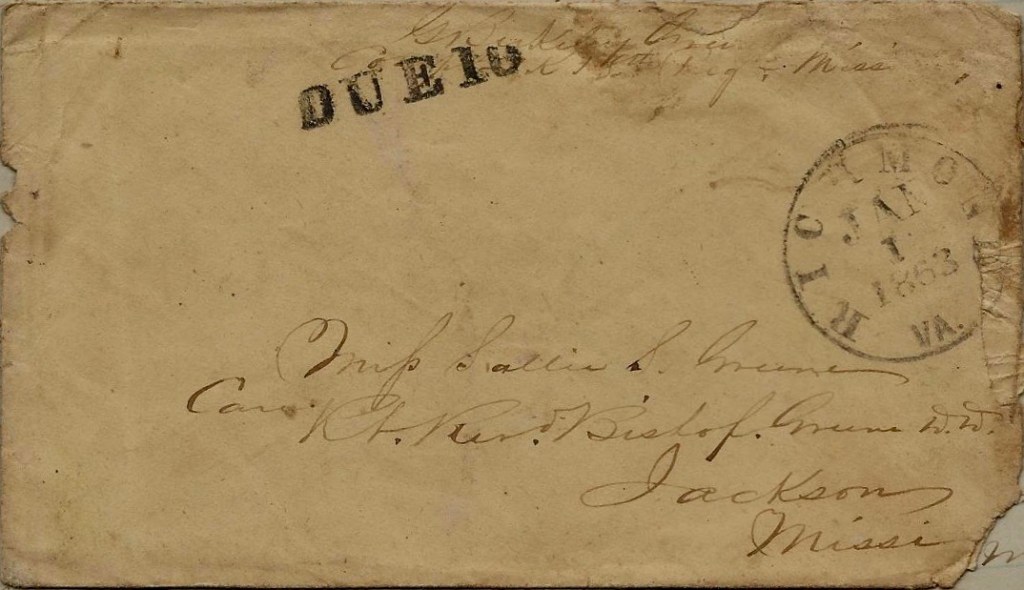 DUE 10
Miss
RICHMOND
JAN
1
1863
VA.
Miss Sallie S. Greene
Care
Rt. Revd. Bishop. Greene D.D.
Jackson
Missi